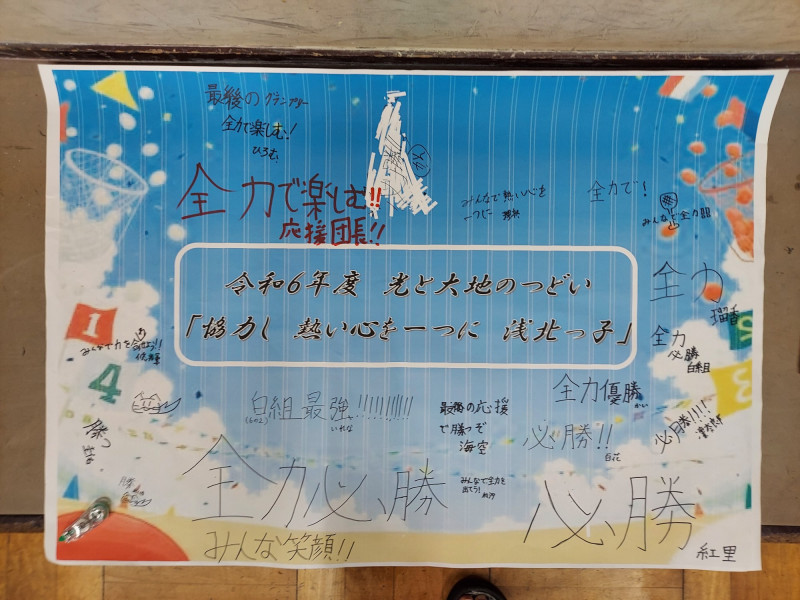 最後の グランプリー
全力で楽しむ!
ひろむ
全力で楽しむ!!
応援団長!!
みんなで熱い心を
一つに
全力で!
みんなで全力!!!
全力
瑠香
令和6年度 光と大地のつどい
「協力し 熱い心を一つに 浅北っ子」
全力
必勝
白組
1
みんなで力を合わせよう!!
4
5
3
白組最強!!!!!!!!!!
いれな
最後の応援
で勝つぞ
海空
全力優勝
かい
必勝!!
必勝!!!!
勝つ
全力必勝
みんな笑顔!!
みんなで全力を
出そう!
必勝
紅里